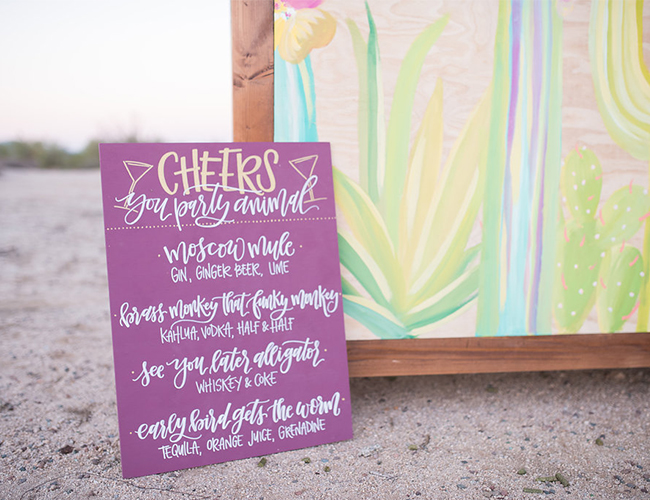 CHEERS
you party animal
moscow mule
GIN, GINGER BEER, LIME
brass monkey that funky monkey
KAHLUA, VODKA, HALF & HALF
see you later alligator
WHISKEY & COKE
early bird gets the worm
TEQUILA, ORANGE JUICE, GRENADINE